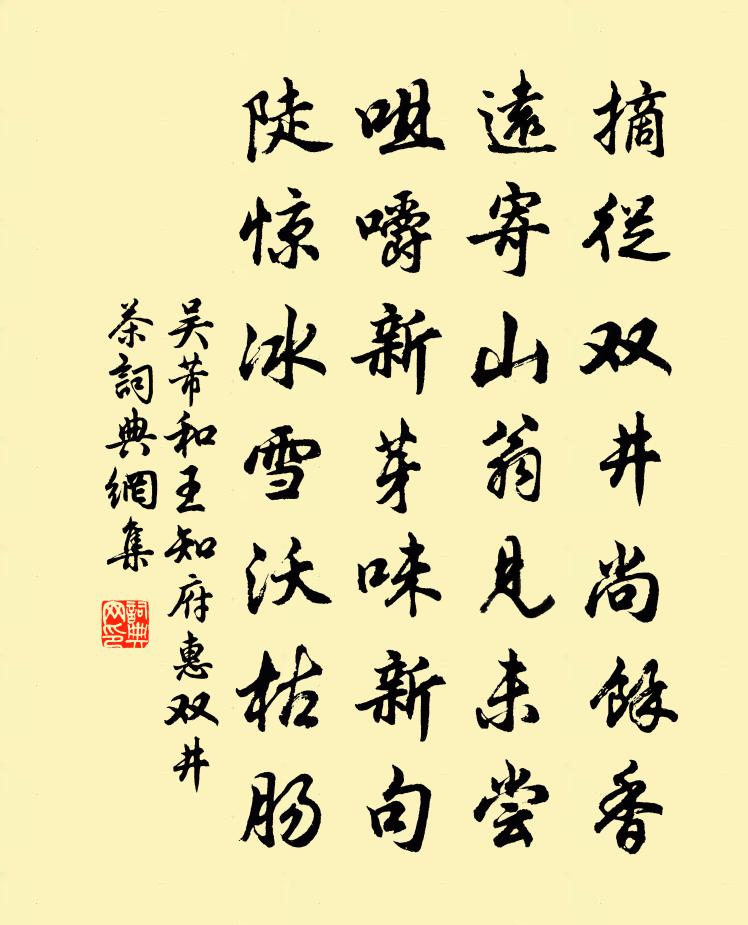 摘從双井尚餘香
遠寄山翁見未尝
咀嚼新芽味新句
陡惊冰雪沃枯肠
吴芾和王知府惠双井
茶詞典網集
詞典
网印